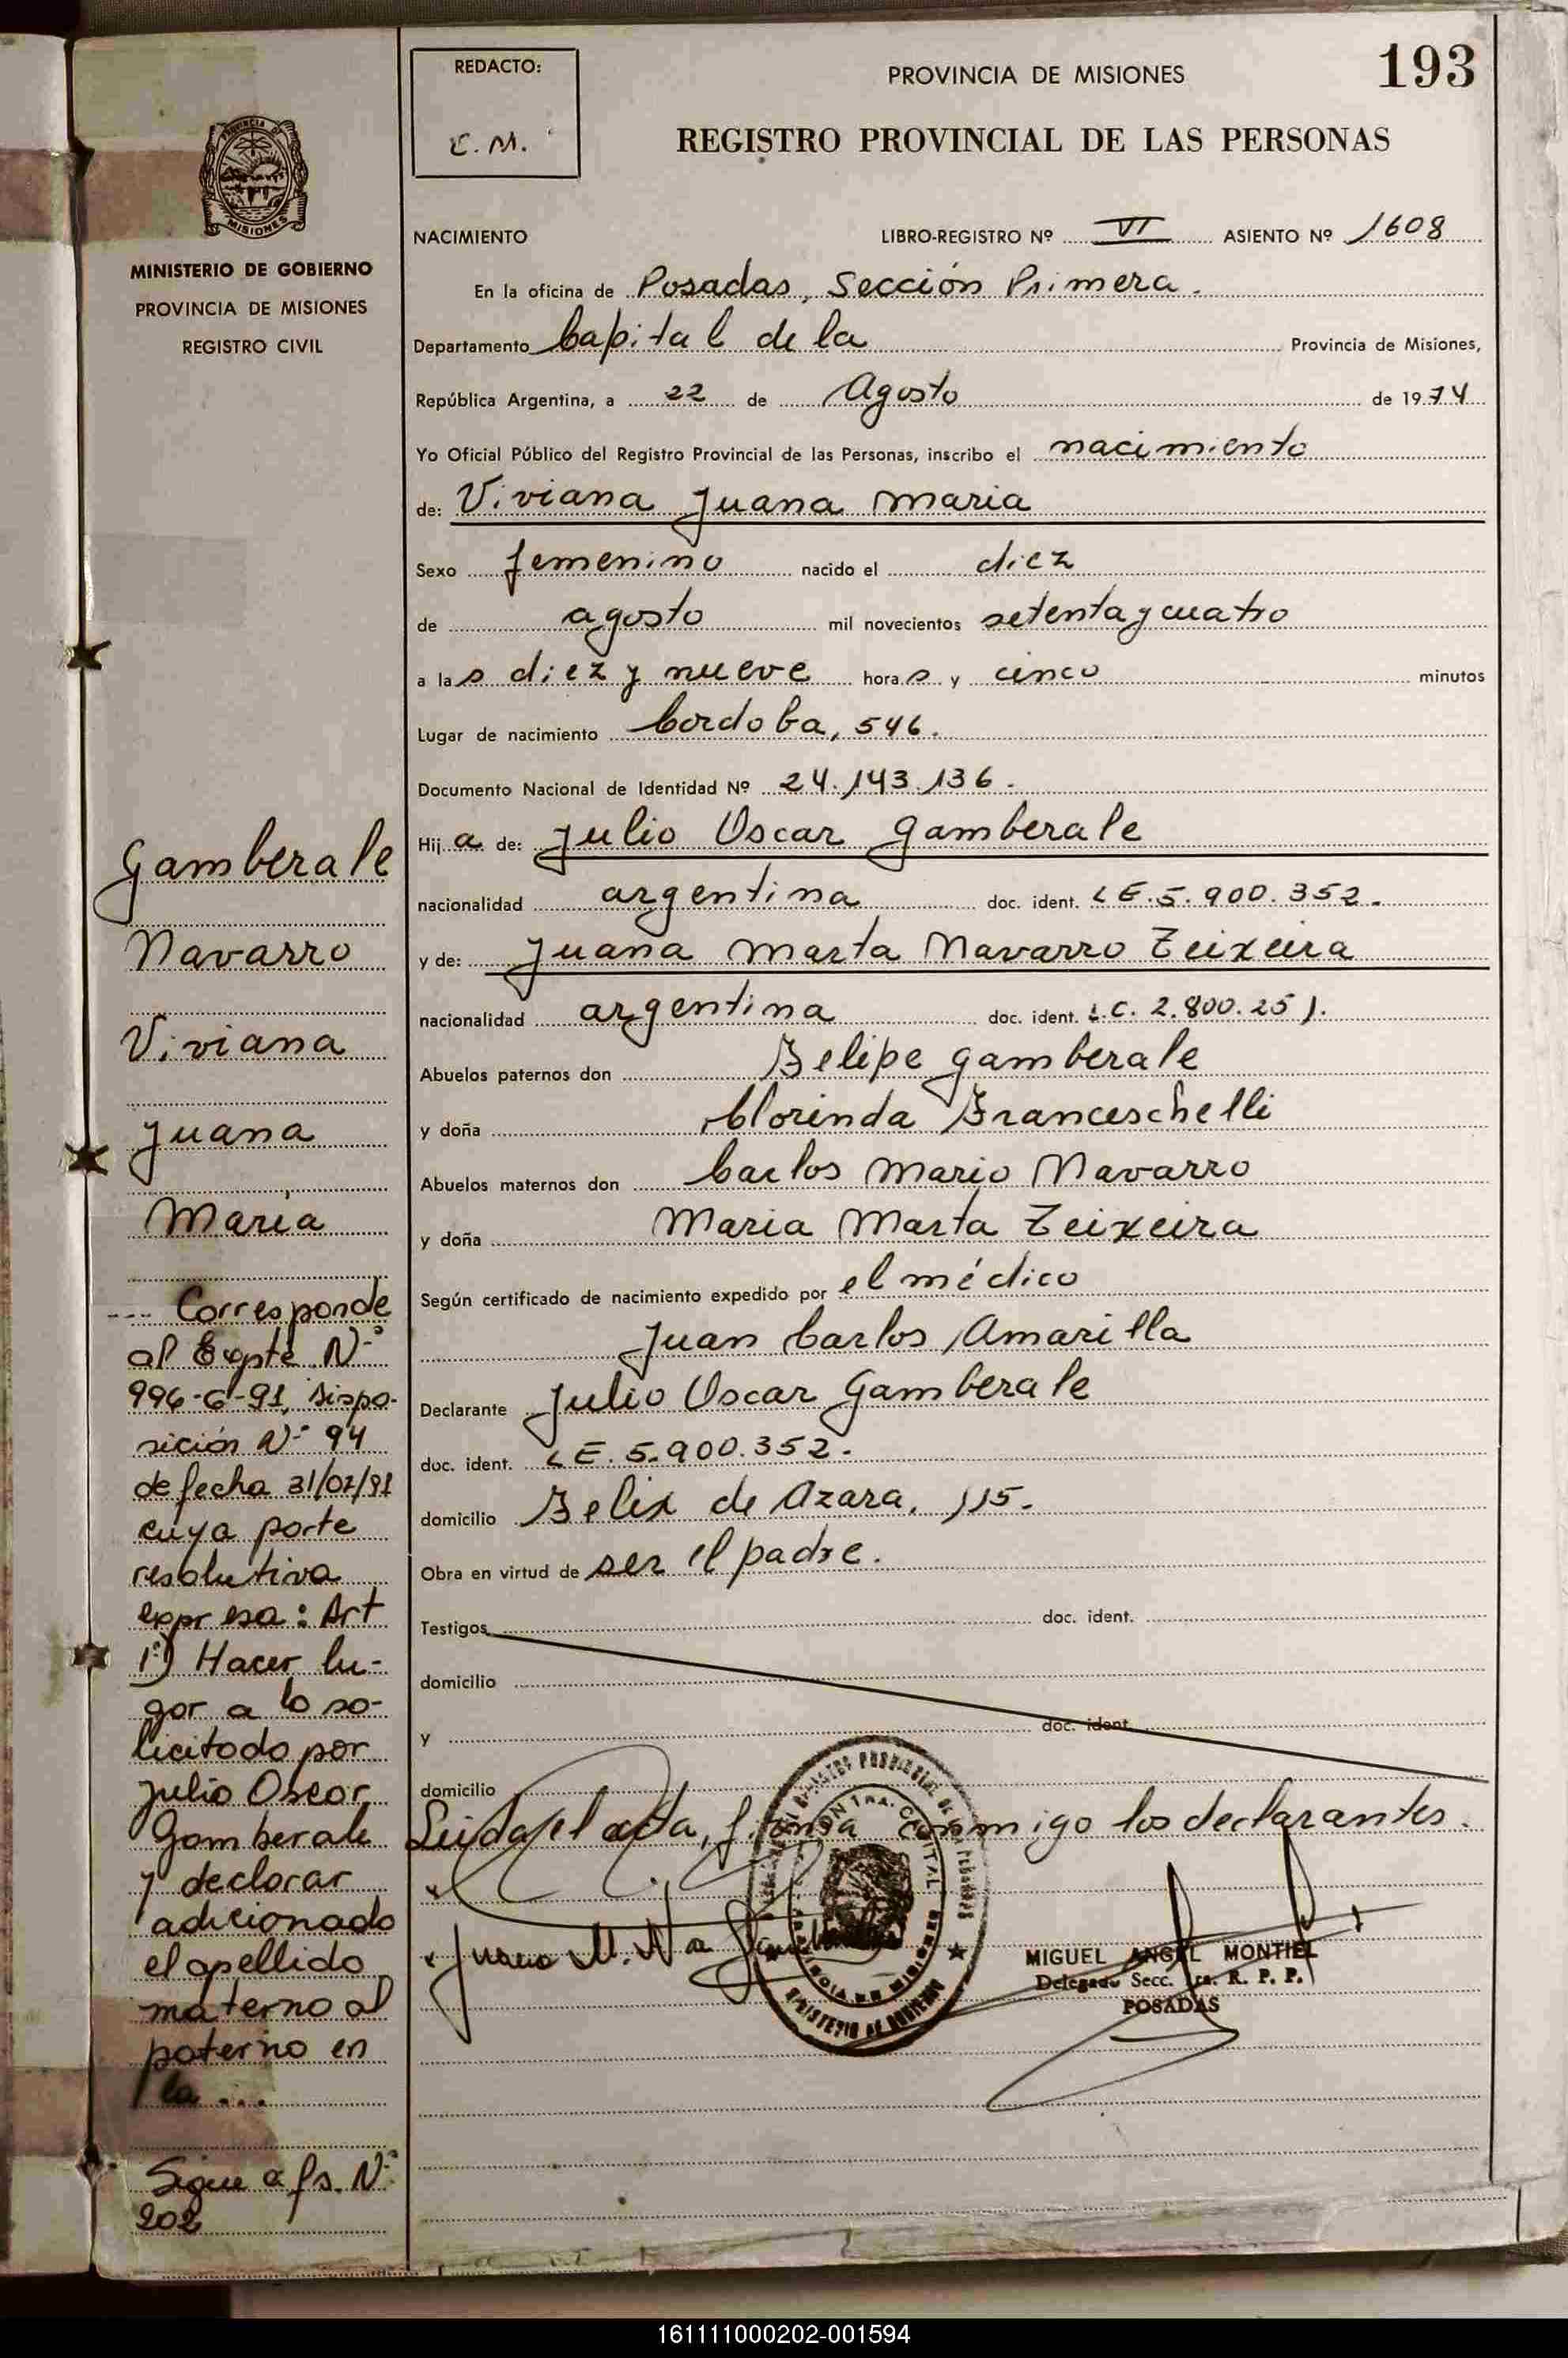 193
REDACTO:
C. M.
PROVINCIA DE MISIONES
REGISTRO PROVINCIAL DE LAS PERSONAS
MISIONES
MINISTERIO DE GOBIERNO
PROVINCIA DE MISIONES
REGISTRO CIVIL
Gamberale
Navarro
Viviana
Juana
Maria
--- Corresponde
al Expte N.º
996-G-91, dispo-
sición Nº 94
de fecha 31/07/91
cuya parte
resolutiva
expresa: Art
1º) Hacer lu-
gar a lo so-
licitado por
Julio Oscar
Gamberale
y declarar
adicionado
el apellido
materno al
paterno en
la ...
Sigue a fs. Nº
202
NACIMIENTO LIBRO-REGISTRO Nº VI ASIENTO Nº 1608
En la oficina de Posadas, Sección Primera.
Departamento Capital de la Provincia de Misiones,
República Argentina, a 22 de Agosto de 1974
Yo Oficial Público del Registro Provincial de las Personas, inscribo el nacimiento
de: Viviana Juana Maria
Sexo femenino nacido el diez
de agosto mil novecientos setenta y cuatro
a las diez y nueve horas y cinco minutos
Lugar de nacimiento Cordoba, 546.
Documento Nacional de Identidad Nº 24.143.136.
Hija de: Julio Oscar Gamberale
nacionalidad argentina doc. ident. LE.5.900.352.
y de: Juana Marta Navarro Teixeira
nacionalidad argentina doc. ident. L.C. 2.800.251.
Abuelos paternos don Felipe Gamberale
y doña Clorinda Franceschelli
Abuelos maternos don Carlos Mario Navarro
y doña Maria Marta Teixeira
Según certificado de nacimiento expedido por el médico
Juan Carlos Amarilla
Declarante Julio Oscar Gamberale
doc. ident. LE. 5.900.352.
domicilio Felix de Azara, 115.
Obra en virtud de ser el padre.
Testigos doc. ident.
domicilio
y doc. ident.
domicilio
Leida el acta, firma conmigo los declarantes.
MIGUEL ANGEL MONTIEL
Delegado Secc. 1ra. R. P. P.
POSADAS
161111000202-001594